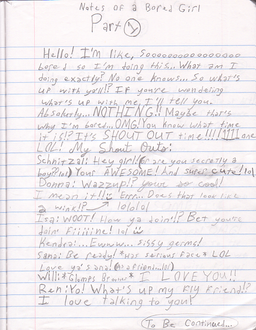 Notes of a Bored Girl
Part 1
Hello! I'm like, Soooooooooooooooo
bored so I'm doing this.. What am I
doing exactly? No one knows... So what's
up with yall!? If you're wondering
what's up with me, I'll tell you.
Absolutly... NOTHING!! Maybe thats
why I'm bored... OMG! You know what time
it is!? It's SHOUT OUT time!!!!1111one
LOL! My Shout Outs:
Schnitzal: Hey girl! (Or are you secretly a
boy?) Your AWESOME! And cute! lol
Donna: Wazzup!? your so cool!
I mean it!! Errr.. Does that look like
a wink!? lololol
Ita: WOOT! How ya doin!? Bet you're
doin Fiiiiine! lol
Kendra... Ewwww... sissy germs!
Sana: Be ready! *has serious face* LOL
Love ya sana!
Will: *Glomps Brown* I LOVE YOU!!
Ren: Yo! What's up my Fly Friend!?
I love talking to you!
(To Be Continued...